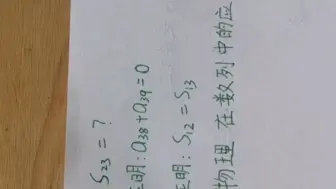 S₂₃ = ?
证明: a₃₈ + a₃₉ = 0
证明: S₁₂ = S₁₃
物理 在数列中的应